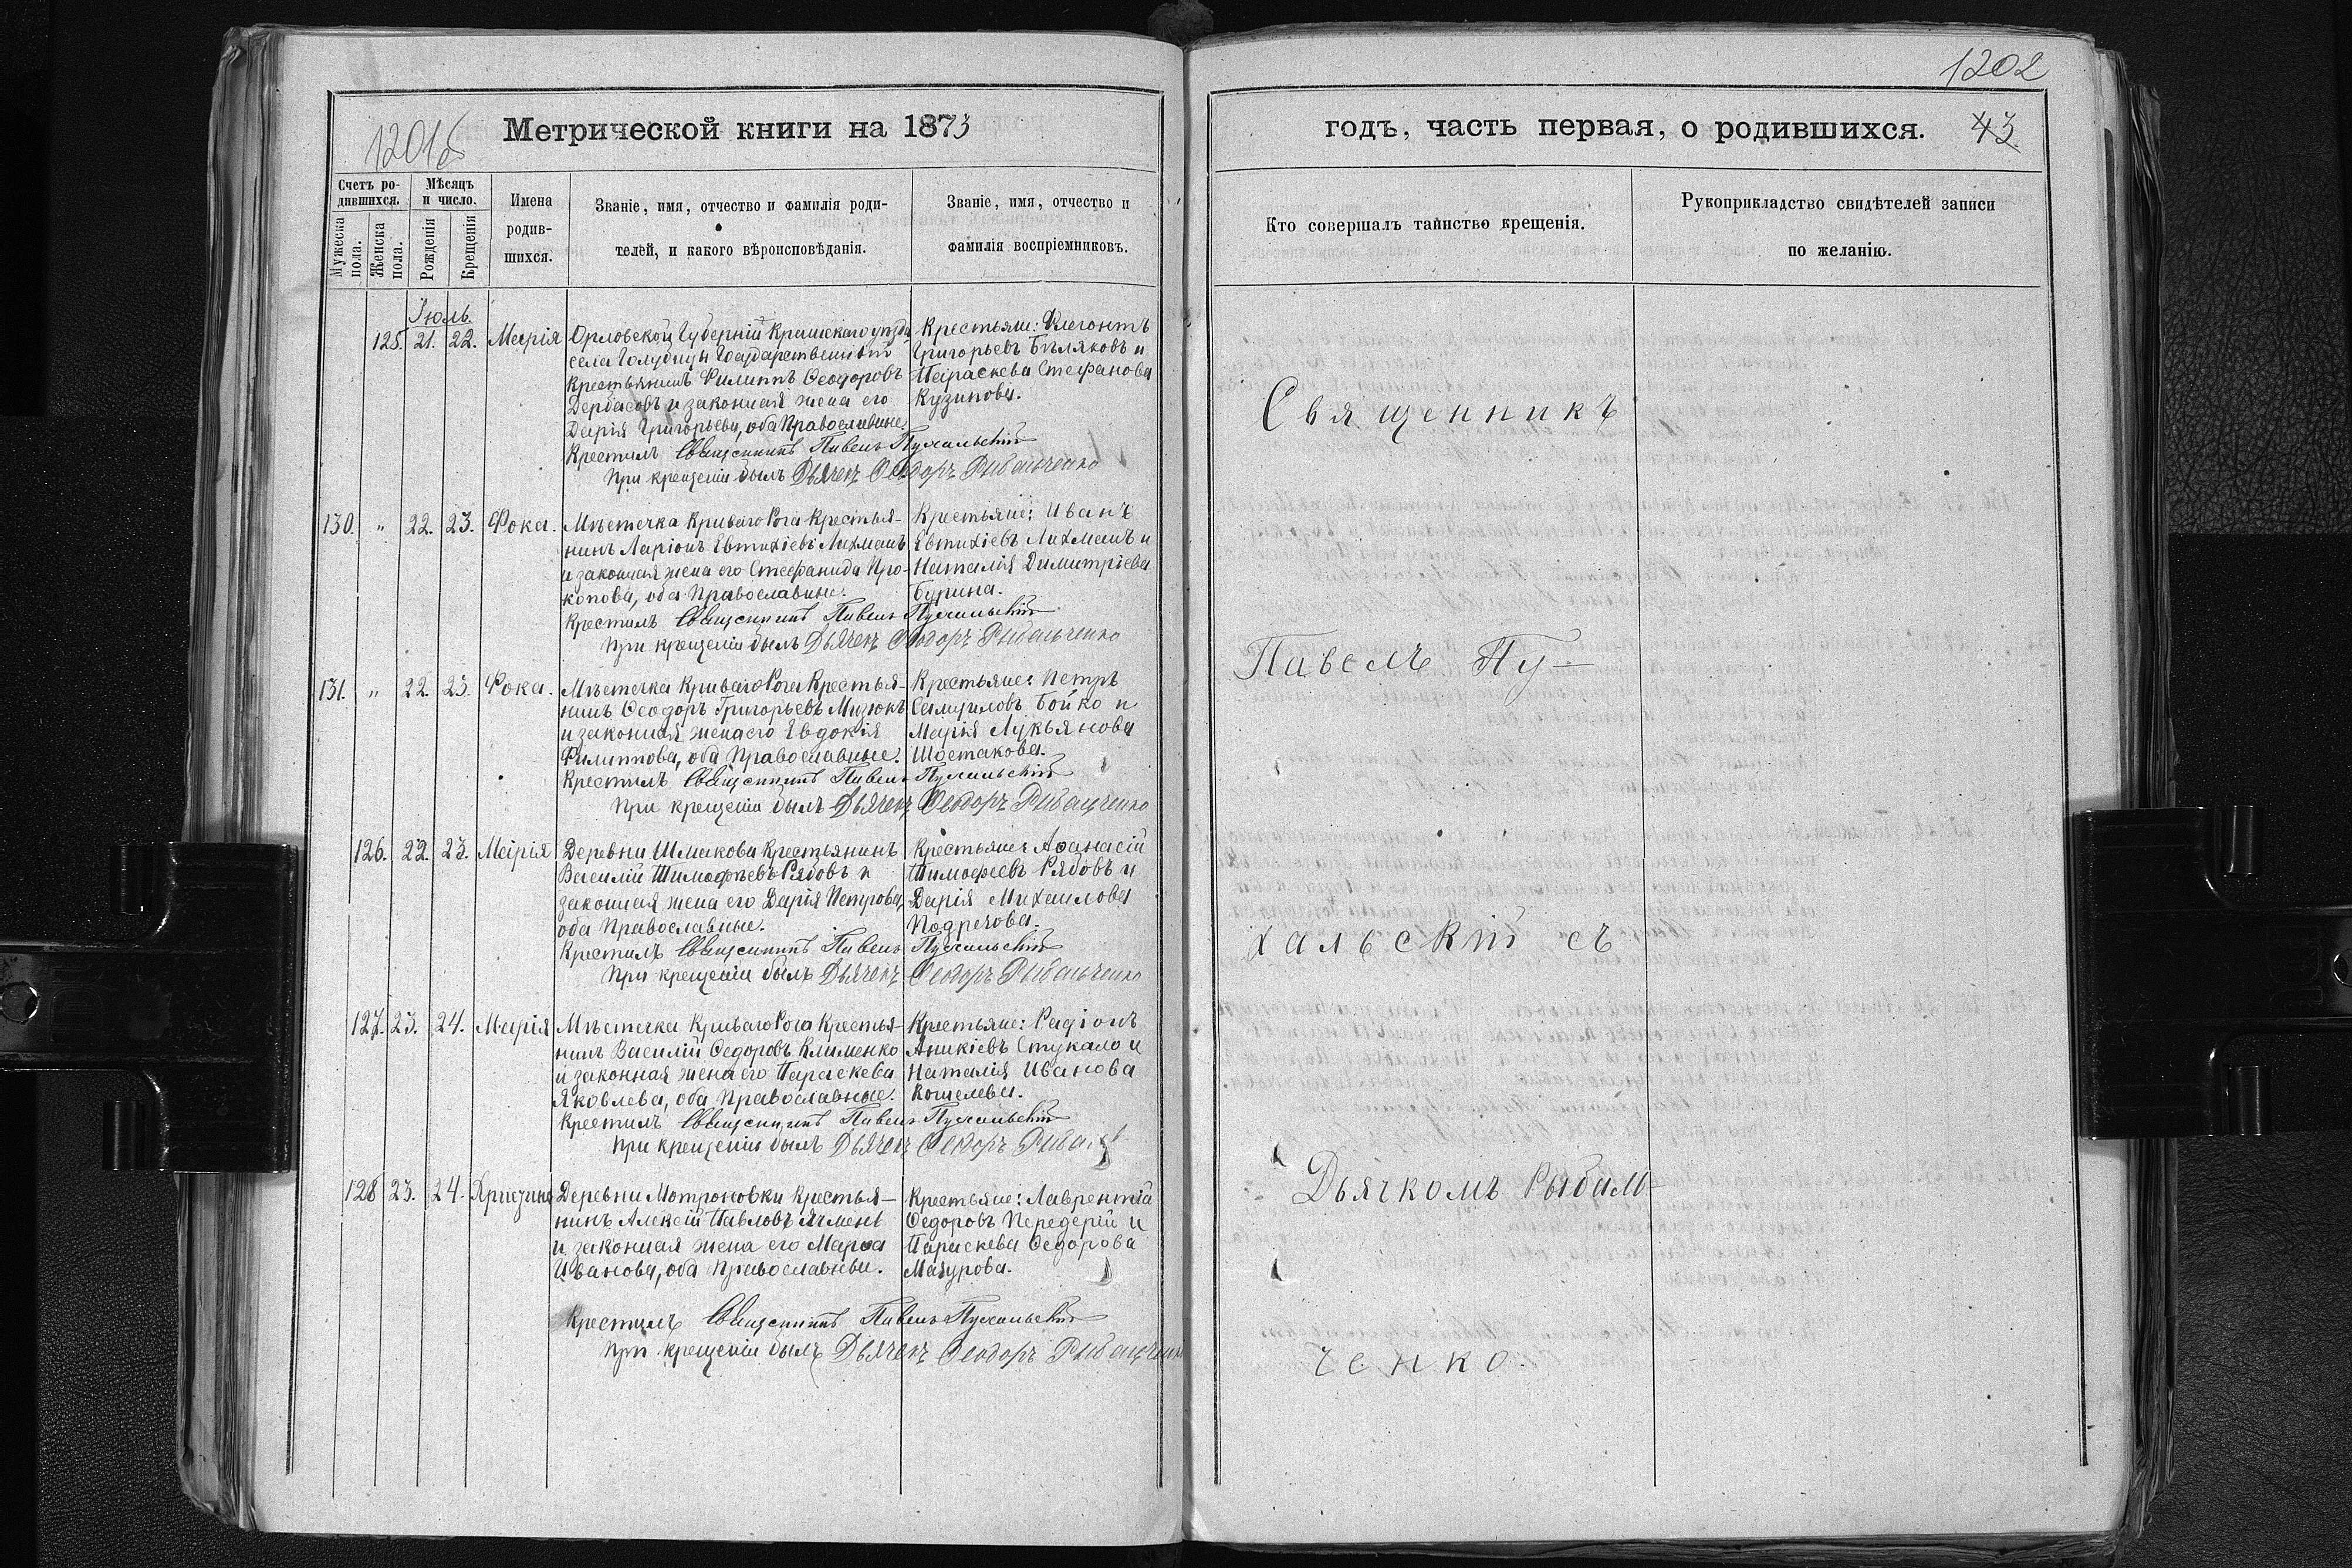 1201б
Метрической книги на 1873
Счетъ ро-
дившихся.
Мужеска
пола.
Женска
пола.
Мѣсяцъ
и число.
Рожденія
Крещенія
Имена
родив-
шихся.
Званіе, имя, отчество и фамилія роди-
телей, и какого вѣроисповѣданія.
Званіе, имя, отчество и
фамилія воспріемниковъ.
Іюль.
125. 21. 22. Марія
Орловской Губерніи уѣзда
села Государственный
крестьянинъ Филиппъ Ѳеодоровъ
Дербасовъ и законная жена его
Дарія Григорьева, оба Православные
Крестьяне: Флегонтъ
Григорьевъ Бѣляковъ и
Параскева Стефанова
Кузинова.
Крестилъ Священникъ Павелъ Пухальскій
При крещеніи былъ Дьячекъ Ѳеодоръ Рыбальченко
130. „ 22. 23. Фока.
Мѣстечка Криваго Рога Крестья-
нинъ Ларіонъ Евтихіевъ Лихманъ
и законная жена его Стефанида Про-
копова, оба Православные.
Крестьяне: Иванъ
Евтихіевъ Лихманъ и
Наталія Димитріева
Бурина.
Крестилъ Священникъ Павелъ Пухальскій
При крещеніи былъ Дьячекъ Ѳеодоръ Рыбальченко
131. „ 22. 23. Фока.
Мѣстечка Криваго Рога Крестья-
нинъ Ѳеодоръ Григорьевъ Мизюкъ
и законная жена его Евдокія
Филиппова, оба Православные.
Крестьяне: Петръ
Самуиловъ Бойко и
Марія Лукьянова
Шостакова.
Крестилъ Священникъ Павелъ Пухальскій
При крещеніи былъ Дьячекъ Ѳеодоръ Рыбальченко
126. 22. 23. Марія
Деревни Шмакова Крестьянинъ
Василій Тимофѣевъ Рябовъ и
законная жена его Дарія Петрова,
оба Православные.
Крестьяне Аѳанасій
Тимофеевъ Рябовъ и
Дарія Михаилова
Подрезова.
Крестилъ Священникъ Павелъ Пухальскій
При крещеніи былъ Дьячекъ Ѳеодоръ Рыбальченко
127. 23. 24. Марія
Мѣстечка Криваго Рога Крестья-
нинъ Василій Ѳедоровъ Клименко
и законная жена его Параскева
Яковлева, оба Православные.
Крестьяне: Радіонъ
Аникіевъ Стукало и
Наталія Иванова
Кошелева.
Крестилъ Священникъ Павелъ Пухальскій
При крещеніи былъ Дьячекъ Ѳеодоръ
128 23. 24.
Деревни Мотроновки Крестья-
нинъ Алексій Павловъ Ячмень
и законная жена его Марѳа
Иванова, оба Православные.
Крестьяне: Лаврентій
Ѳедоровъ Передерій и
Параскева Ѳедорова
Мазурова.
Крестилъ Священникъ Павелъ Пухальскій
При крещеніи былъ Дьячекъ Ѳеодоръ Рыбальченко
1202
годъ, часть первая, о родившихся. 43
Кто совершалъ таинство крещенія.
Рукоприкладство свидѣтелей записи
по желанію.
Священникъ
Павелъ Пу-
хальскій съ
Дьячкомъ Рыбаль-
ченко.